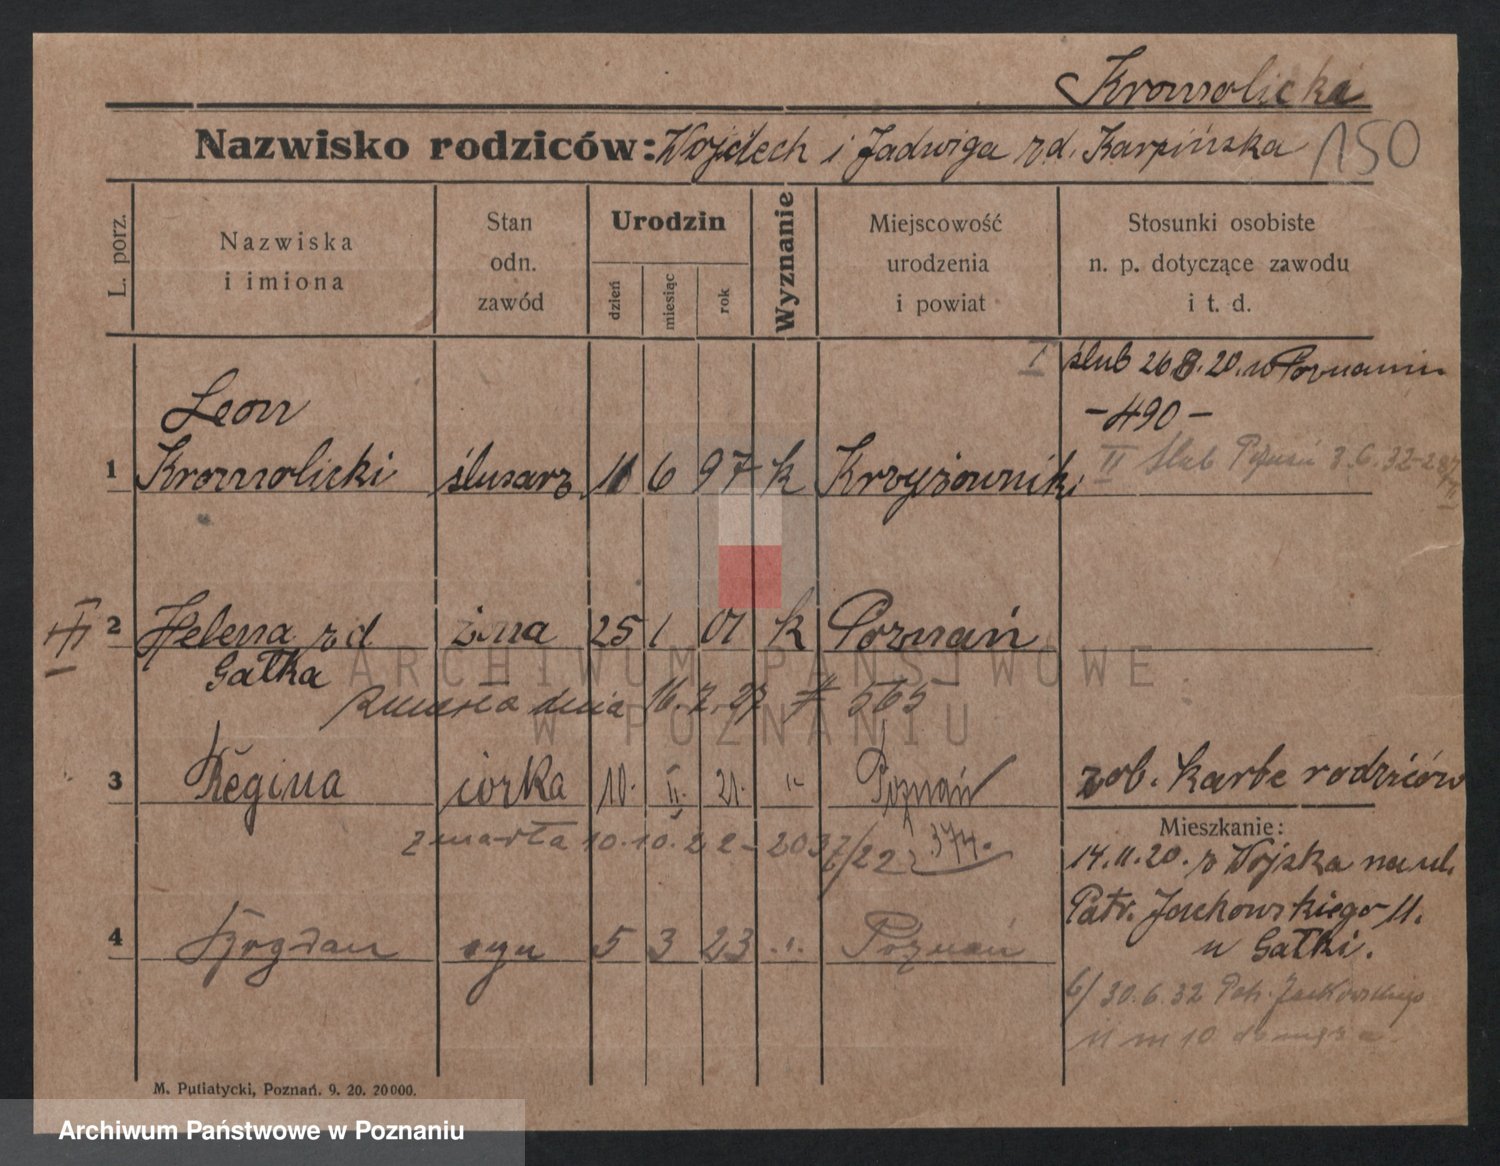 Kromolicka
Nazwisko rodziców: Wojciech i Jadwiga zd. Karpińska 150
L. porz.
Nazwiska i imiona
Stan odn. zawód
Urodzin
dzień
miesiąc
rok
Wyznanie
Miejscowość urodzenia i powiat
Stosunki osobiste n. p. dotyczące zawodu i t. d.
I ślub 26 8. 20. w Poznaniu
- 490 -
Leon
1 Kromolicki ślusarz 11 6 97 k Krzyżowniki
II Ślub 3.6.32
III 2 Helena zd żona 25 1 01 k Poznań
Gałka
zmarła dnia 16. 2. 27 # 565
3 Regina córka 10. II. 21. " Poznań
zob. kartę rodziców
zmarła 10.10.22 - 2037/22 374.
Mieszkanie:
14.11.20. z Wojska na ul.
Patr. Jackowskiego 11.
u Gałki.
4 Bogdan syn 5 3 23 " Poznań
6/ 30.6.32 Patr. Jackowskiego
11 m 10
M. Putiatycki, Poznań. 9. 20. 20000.
ARCHIWUM PAŃSTWOWE
W POZNANIU
Archiwum Państwowe w Poznaniu